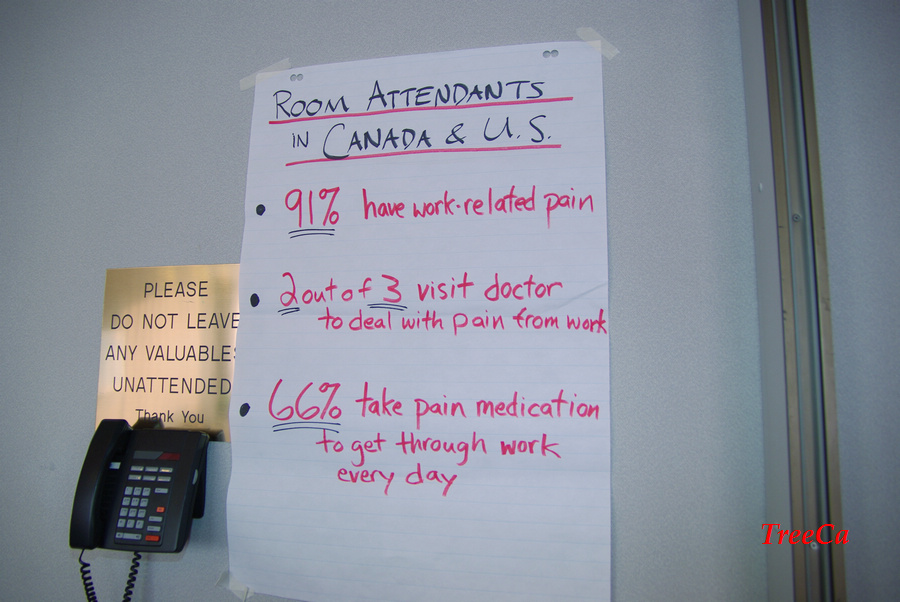 ROOM ATTENDANTS
IN CANADA & U.S.
• 91% have work-related pain
• 2 out of 3 visit doctor
to deal with pain from work
• 66% take pain medication
to get through work
every day
PLEASE
DO NOT LEAVE
ANY VALUABLES
UNATTENDED
Thank You
TreeCa